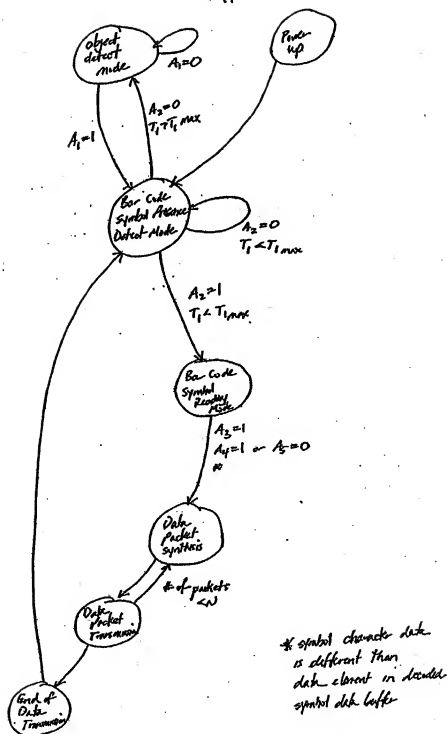 Object
detect
mode
A₁=0
Power
up
A₁=1
A₂=0
T₁>T₁ max
Bar Code
Symbol Presence
Detect Mode
A₂=0
T₁<T₁max
A₂=1
T₁<T₁max
Bar Code
Symbol
Reading
Mode
A₃=1
A₄=1 or A₅=0
*
Data
Packet
synthesis
# of packets
<N
Data
Packet
Transmission
End of
Data
Transmission
* symbol character data
is different than
data element in decoded
symbol data buffer